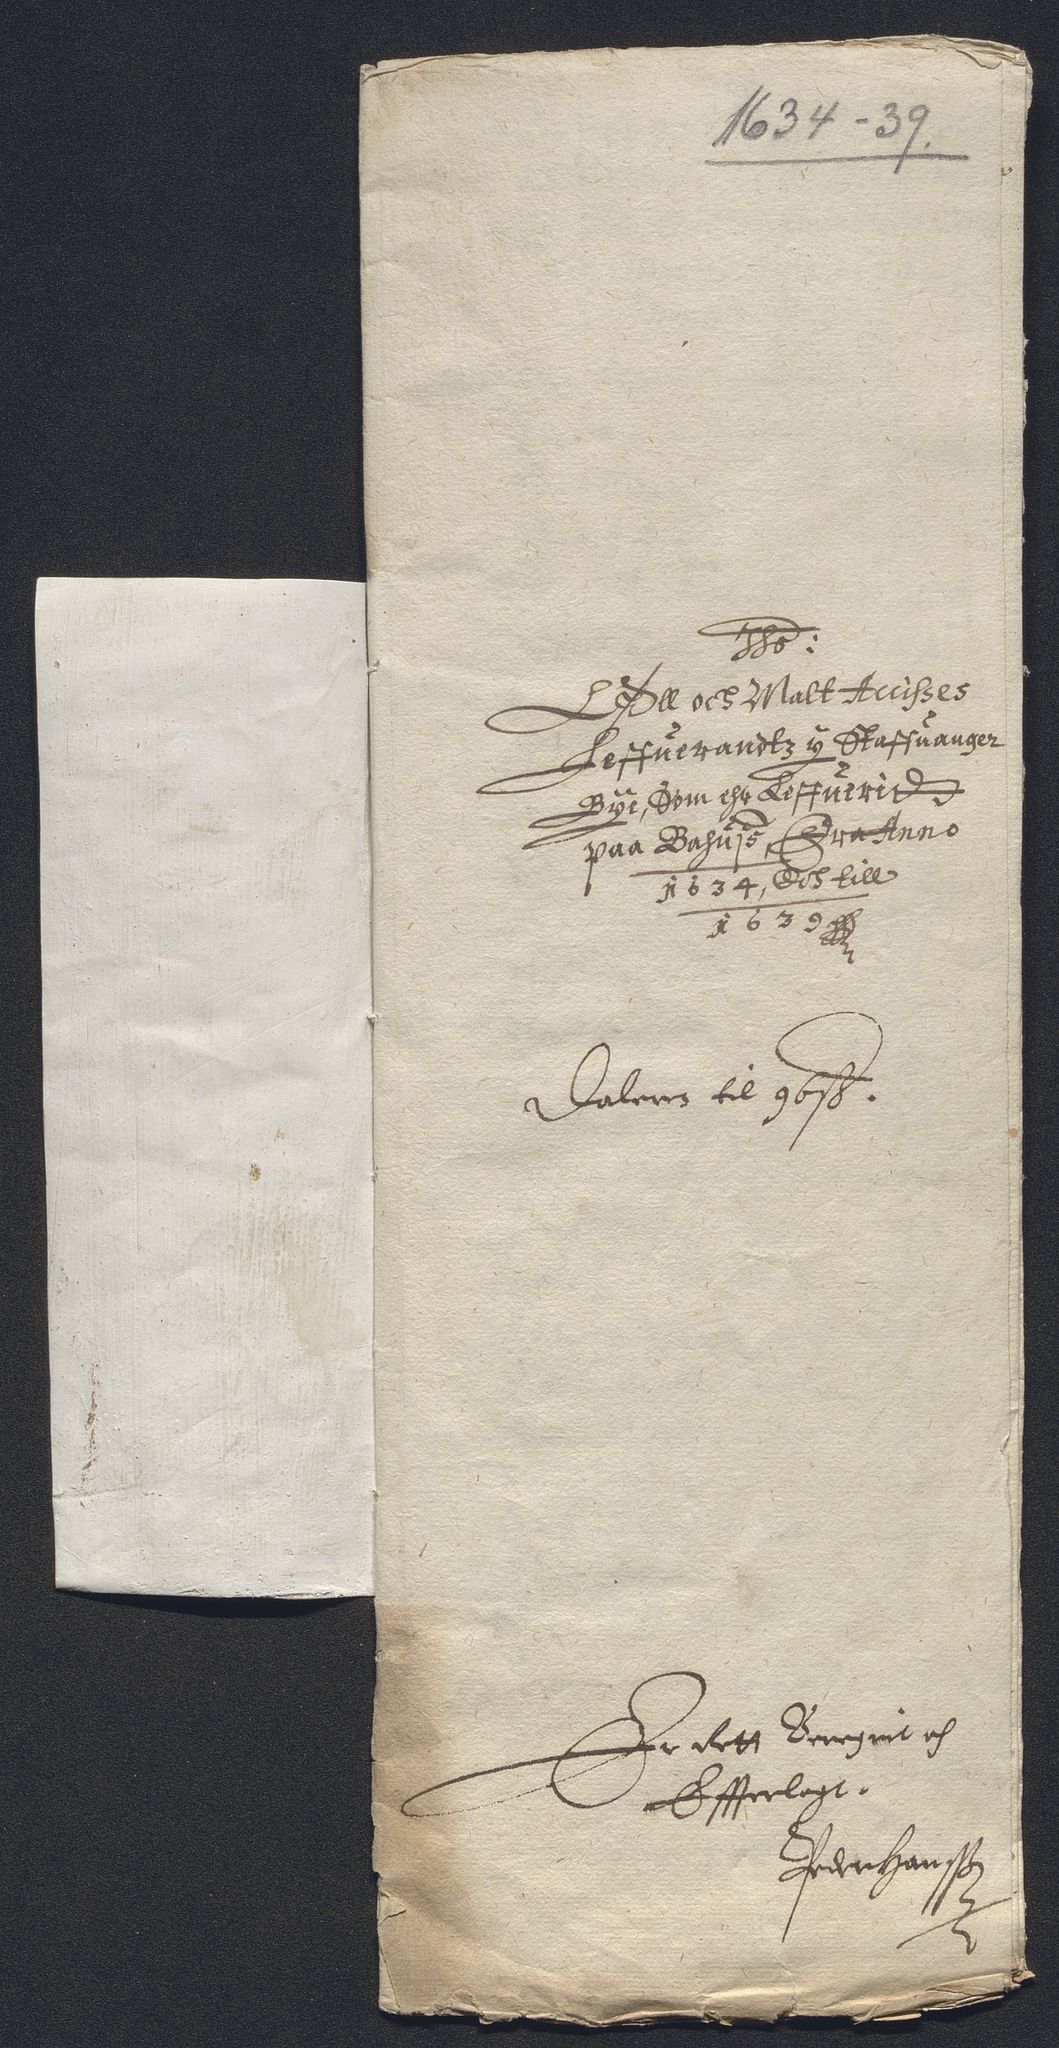 1634-39.
Øll och Malt Accihses
Leffuerandtz y Staffuanger
Bye, Som ehr Leffuerid
paa Bahujs, Fra Anno
1634, Och till
1639
Dalern til 96 ß.
Er rett Beregnit och
Efferlagt.
Peder Hanssz